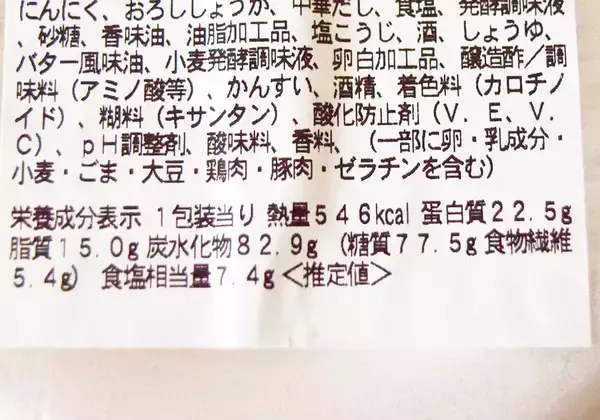 にんにく、おろししょうが、中華だし、食塩、発酵調味液
、砂糖、香味油、油脂加工品、塩こうじ、酒、しょうゆ、
バター風味油、小麦発酵調味液、卵白加工品、醸造酢／調
味料（アミノ酸等）、かんすい、酒精、着色料（カロチノ
イド）、糊料（キサンタン）、酸化防止剤（Ｖ．Ｅ、Ｖ．
Ｃ）、ｐＨ調整剤、酸味料、香料、（一部に卵・乳成分・
小麦・ごま・大豆・鶏肉・豚肉・ゼラチンを含む）
栄養成分表示 １包装当り 熱量５４６kcal 蛋白質２２．５g
脂質１５．０g 炭水化物８２．９g （糖質７７．５g 食物繊維
５．４g） 食塩相当量７．４g＜推定値＞